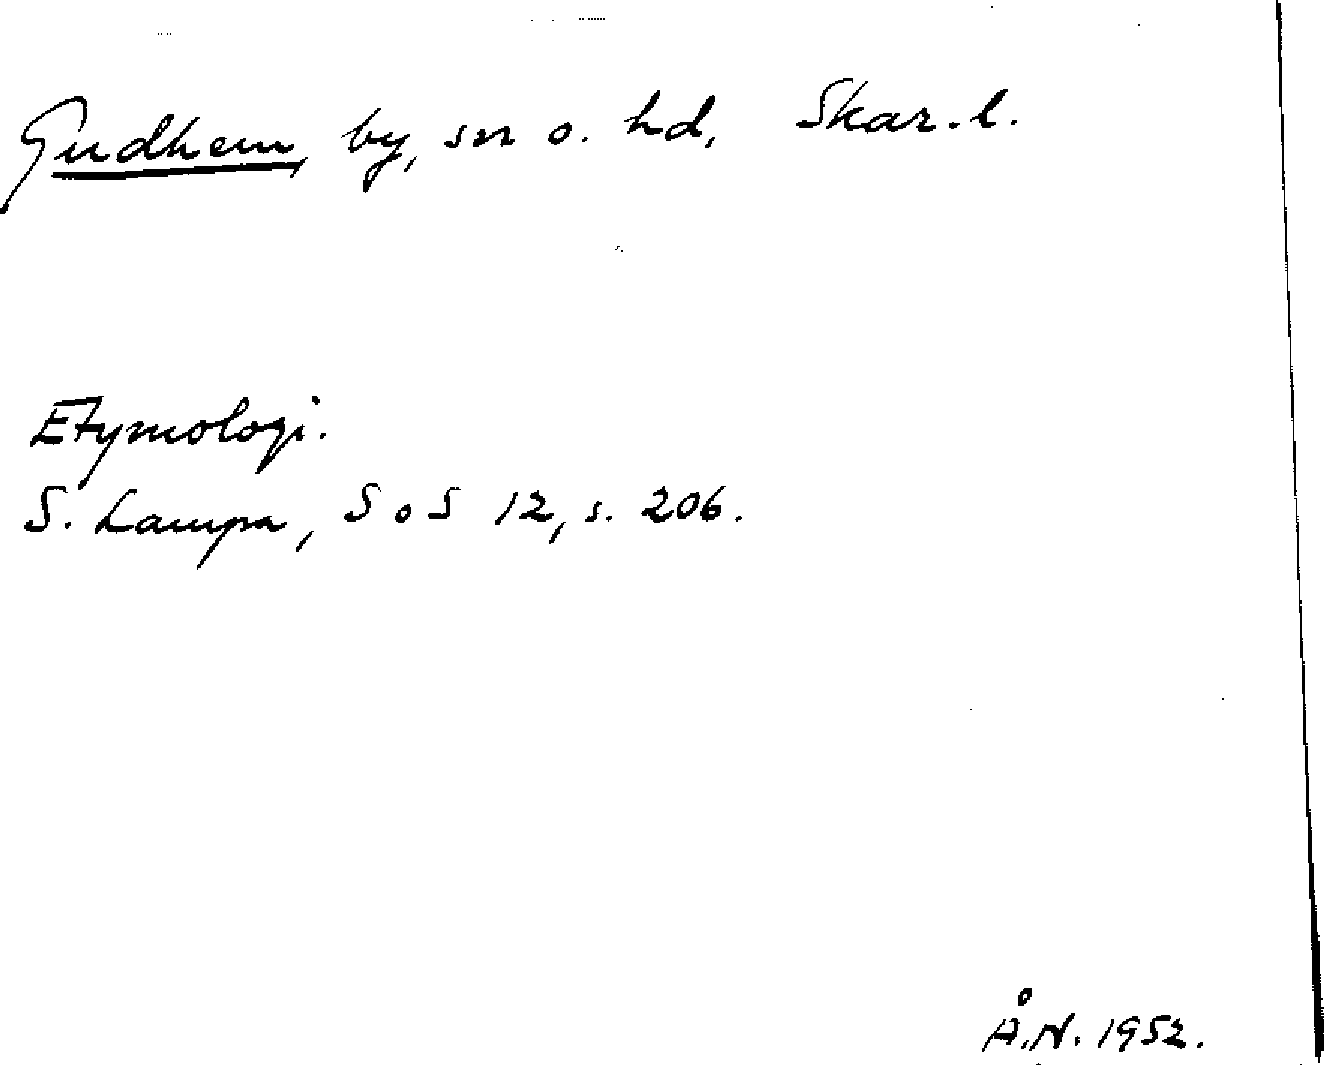 Gudhem, by, sn o. hd, Skar. l.
Etymologi.
S. Lampa, SoS 12, s. 206.
Å.N. 1952.